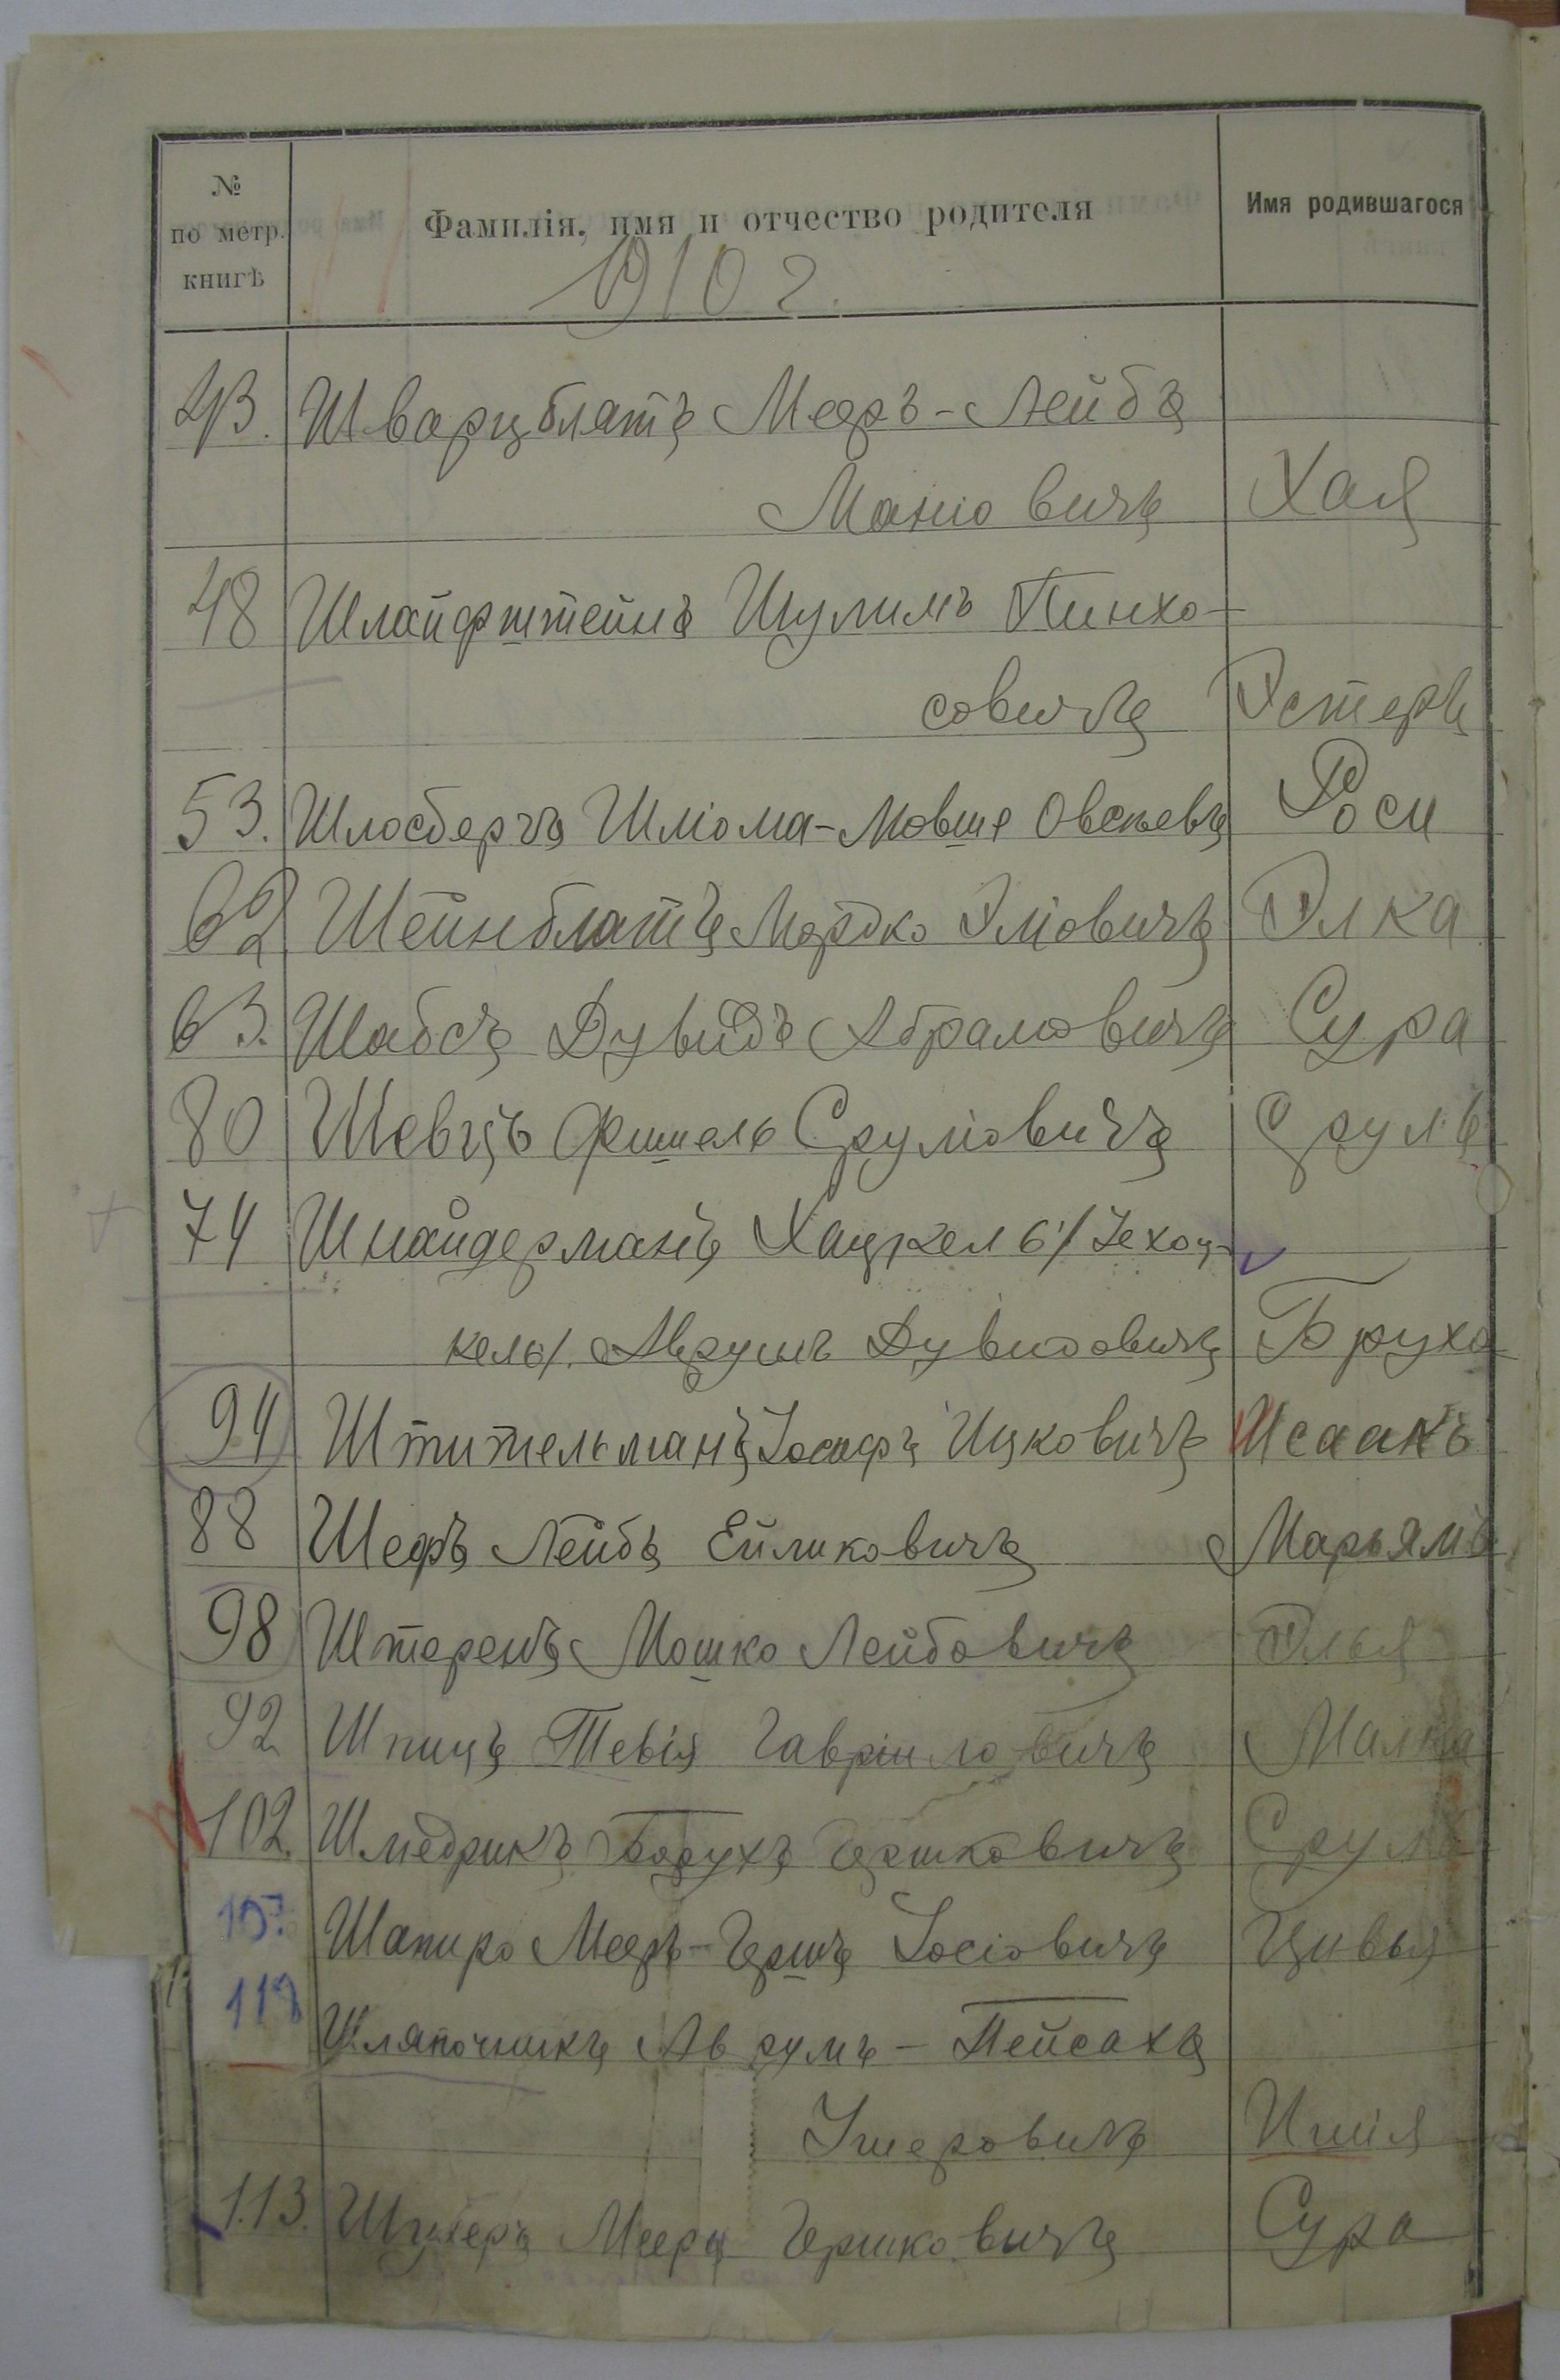 № по метр. книгѣ Фамилія, имя и отчество родителя Имя родившагося
1910 г.
43. Шварцблатъ Мееръ-Лейбъ
Маніовичъ Хая
48 Шлайфштейнъ Шулимъ Пинхо-
совичъ Эстеръ
53. Шлосбергъ Шліома-Мовше Овсѣевъ Роси
62 Шейнблатъ Мордко Эліовичъ Элка
63. Шабсъ Дувидъ Абрамовичъ Сура
80 Шевцъ Фишель Сруліовичъ Сруль
74 Шнайдерманъ Хацкель /Іехоц-
кель/. Аврумъ Дувидовичъ Бруха
94 Штительманъ Іосифъ Ицковичъ Исаакъ
88 Шефъ Лейбъ Ейликовичъ Марьямъ
98 Штеренъ Мошко Лейбовичъ Элья
92 Шпицъ Тевія Гавріиловичъ Малка
102. Шмедрикъ Борухъ Гершковичъ Сруль
107. Шапиро Мееръ-Гершъ Іосіовичъ Цивья
118 Шляпочникъ Аврумъ-Пейсахъ
Ушеровичъ
113. Мееръ Гершковичъ Сура